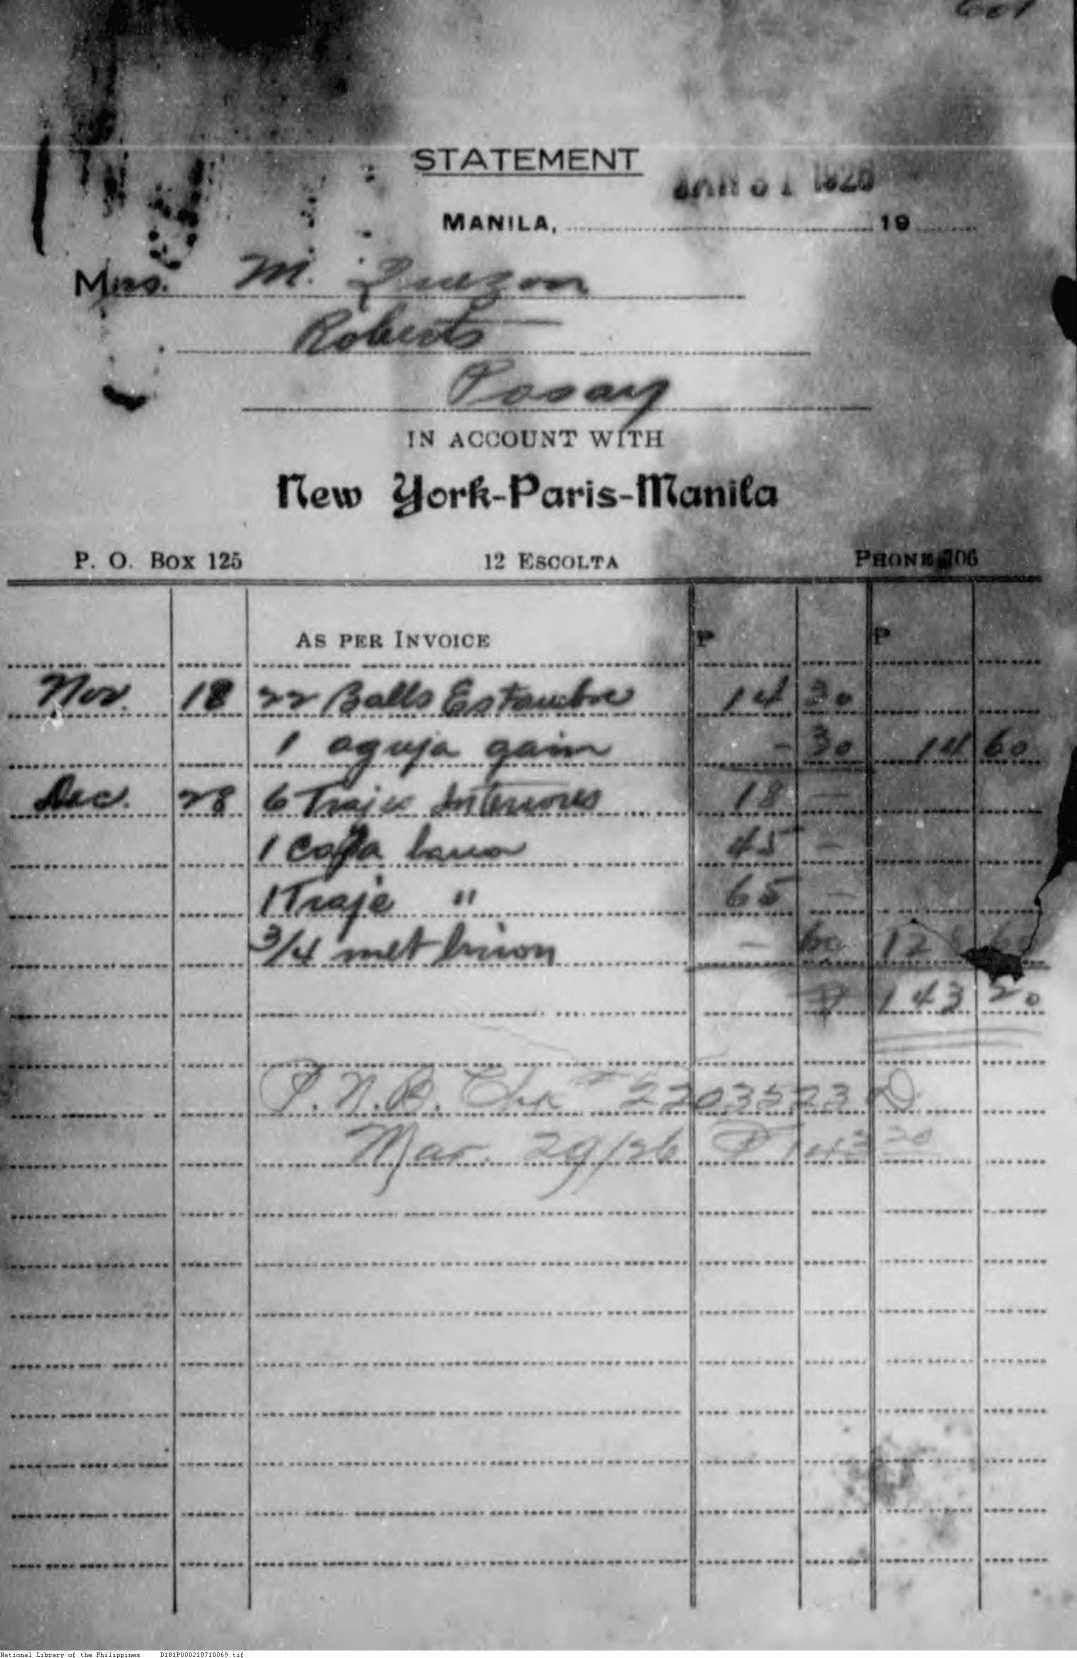 STATEMENT
JAN 31 1926
MANILA, 19
Mrs. M. Quezon
Roberts
Pasay
IN ACCOUNT WITH
New York-Paris-Manila
P. O. BOX 125 12 ESCOLTA PHONE 706
AS PER INVOICE P P
Nov. 18 22 Balls Estambre 14 30
1 aguja - 30 14 60
Dec. 28 6 Trajes Interiores 18 -
1 Capa 45 -
1 Traje " 65 -
3/4 met - 60 128 60
₱ 143 20
P.N.B. Chk # 2203523 D
Mar. 29/26 ₱ 143 20
National Library of the Philippines D181P000210710069.tif